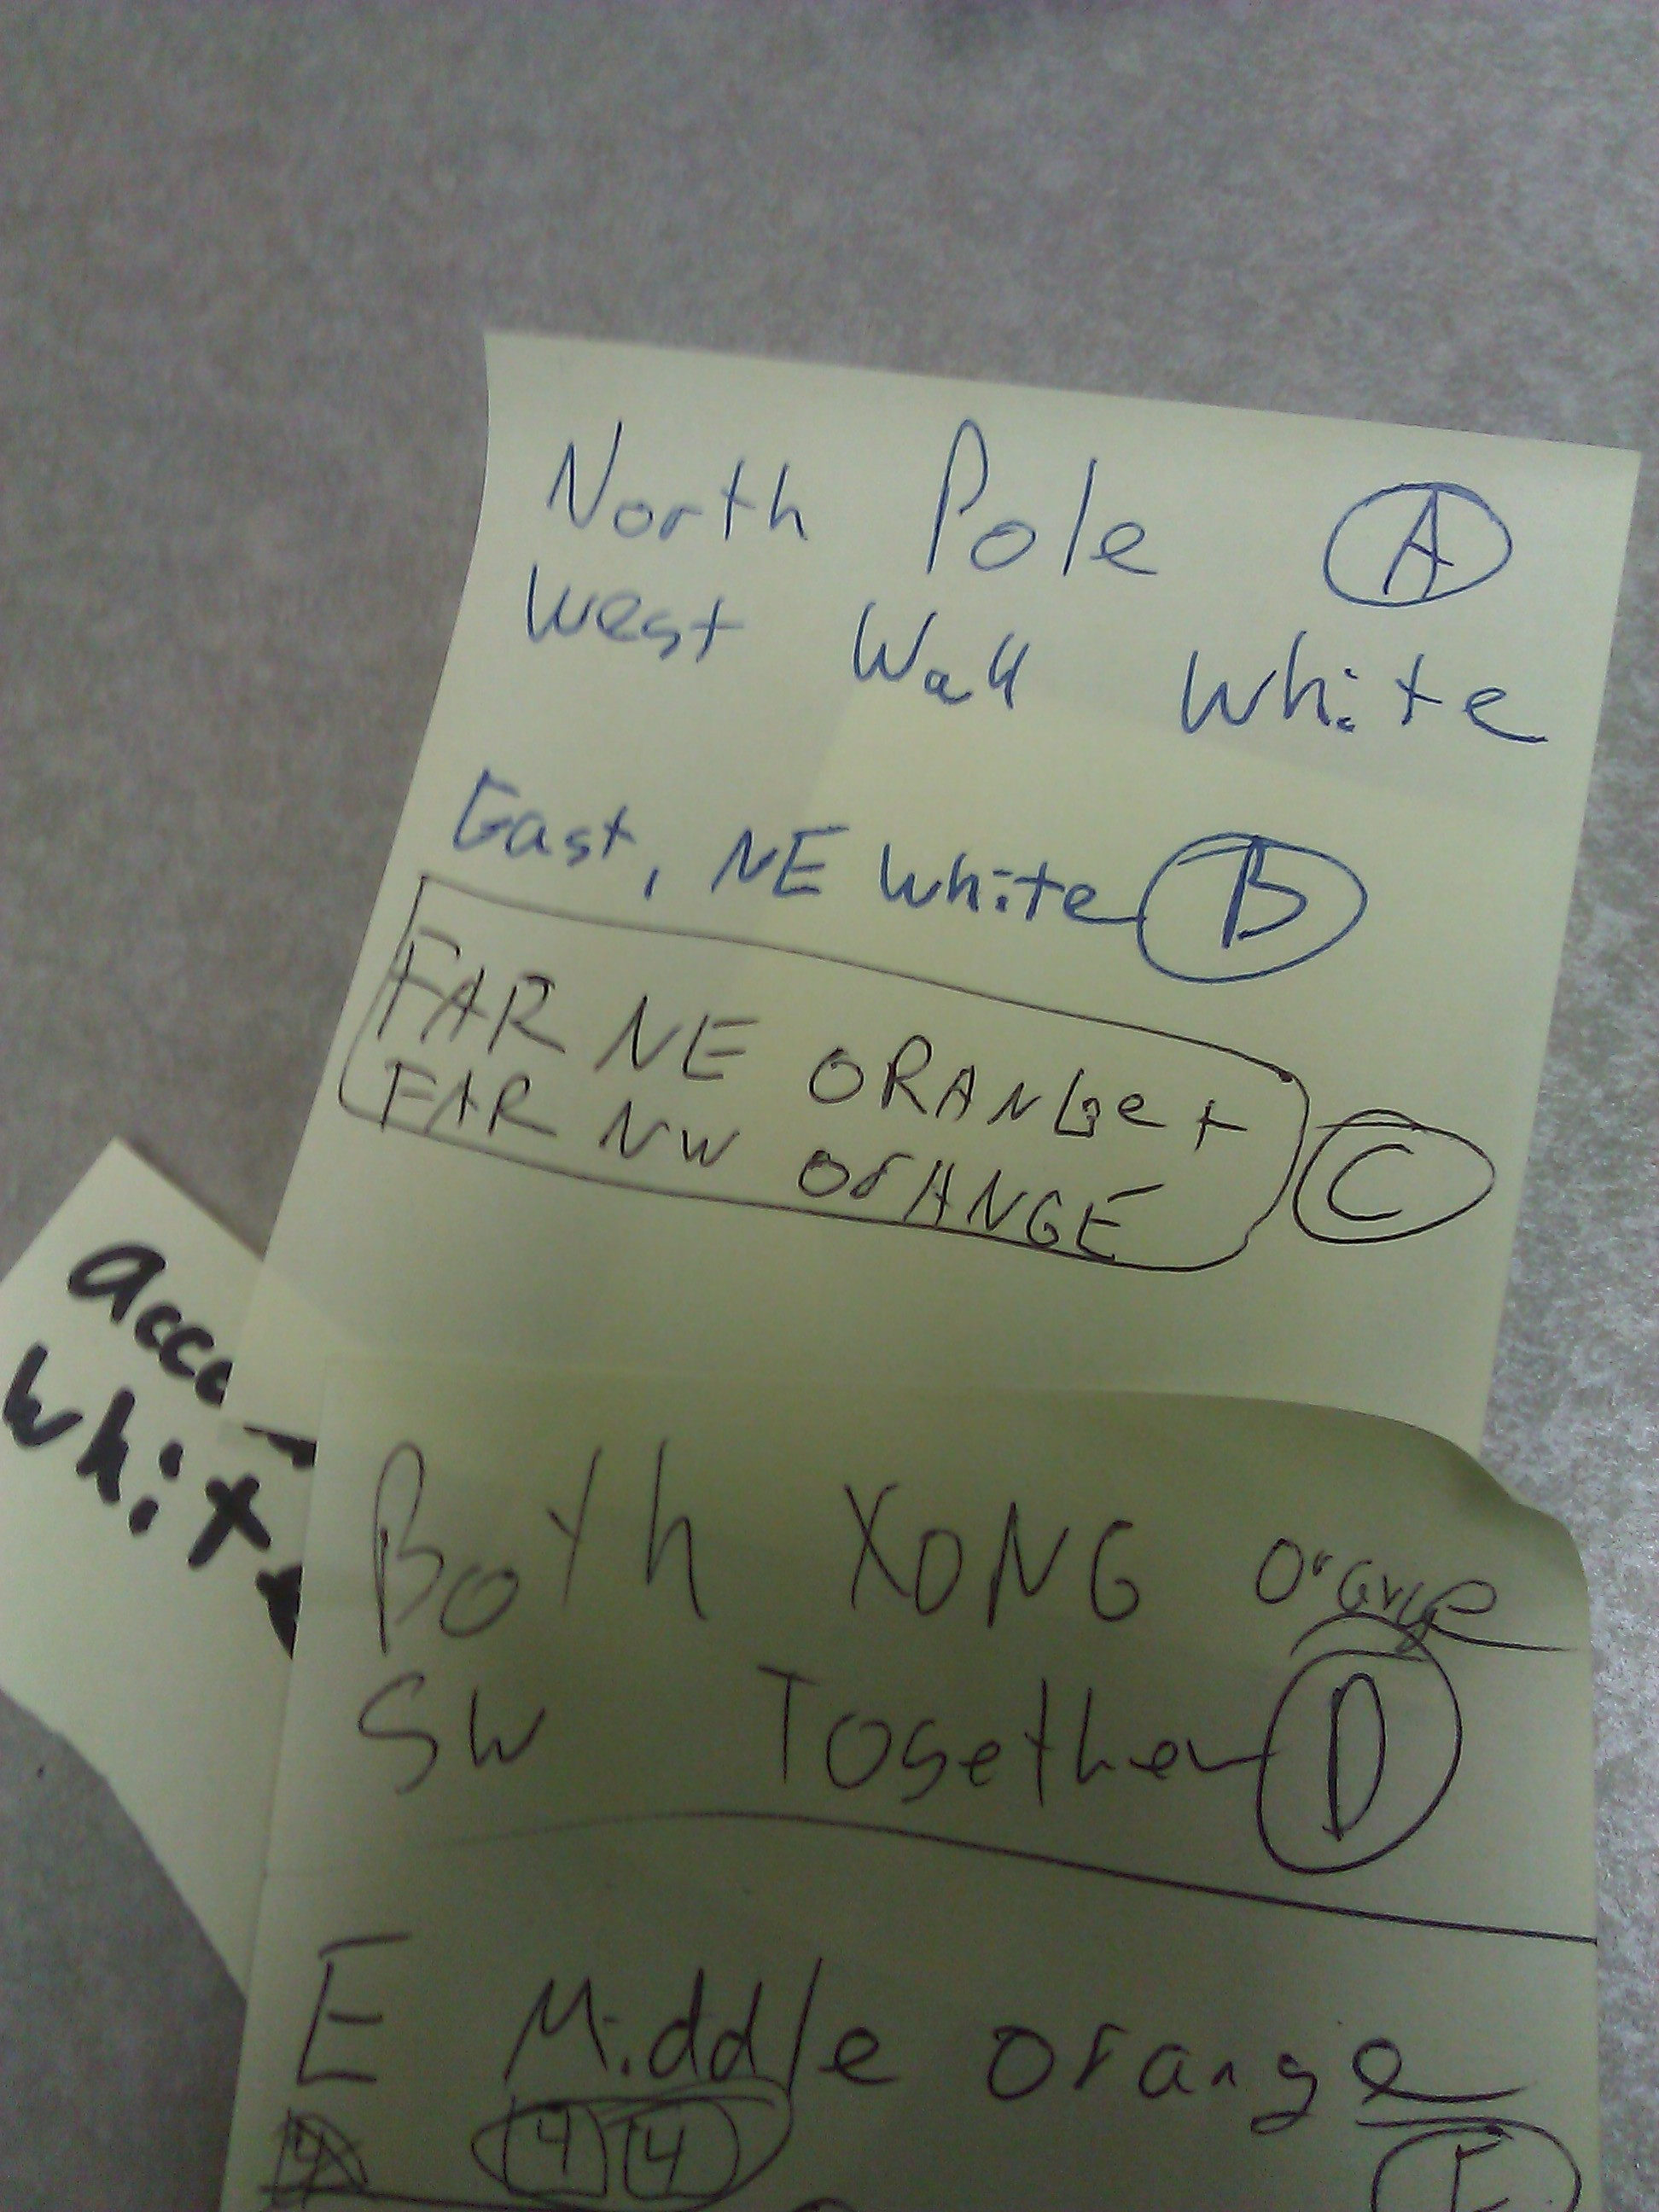 North Pole A
West Wall White
East, NE White B
FAR NE ORANGe +
FAR NW OrANGE C
Both XONG orange
SW Together D
E Middle orange
4 4 4
White